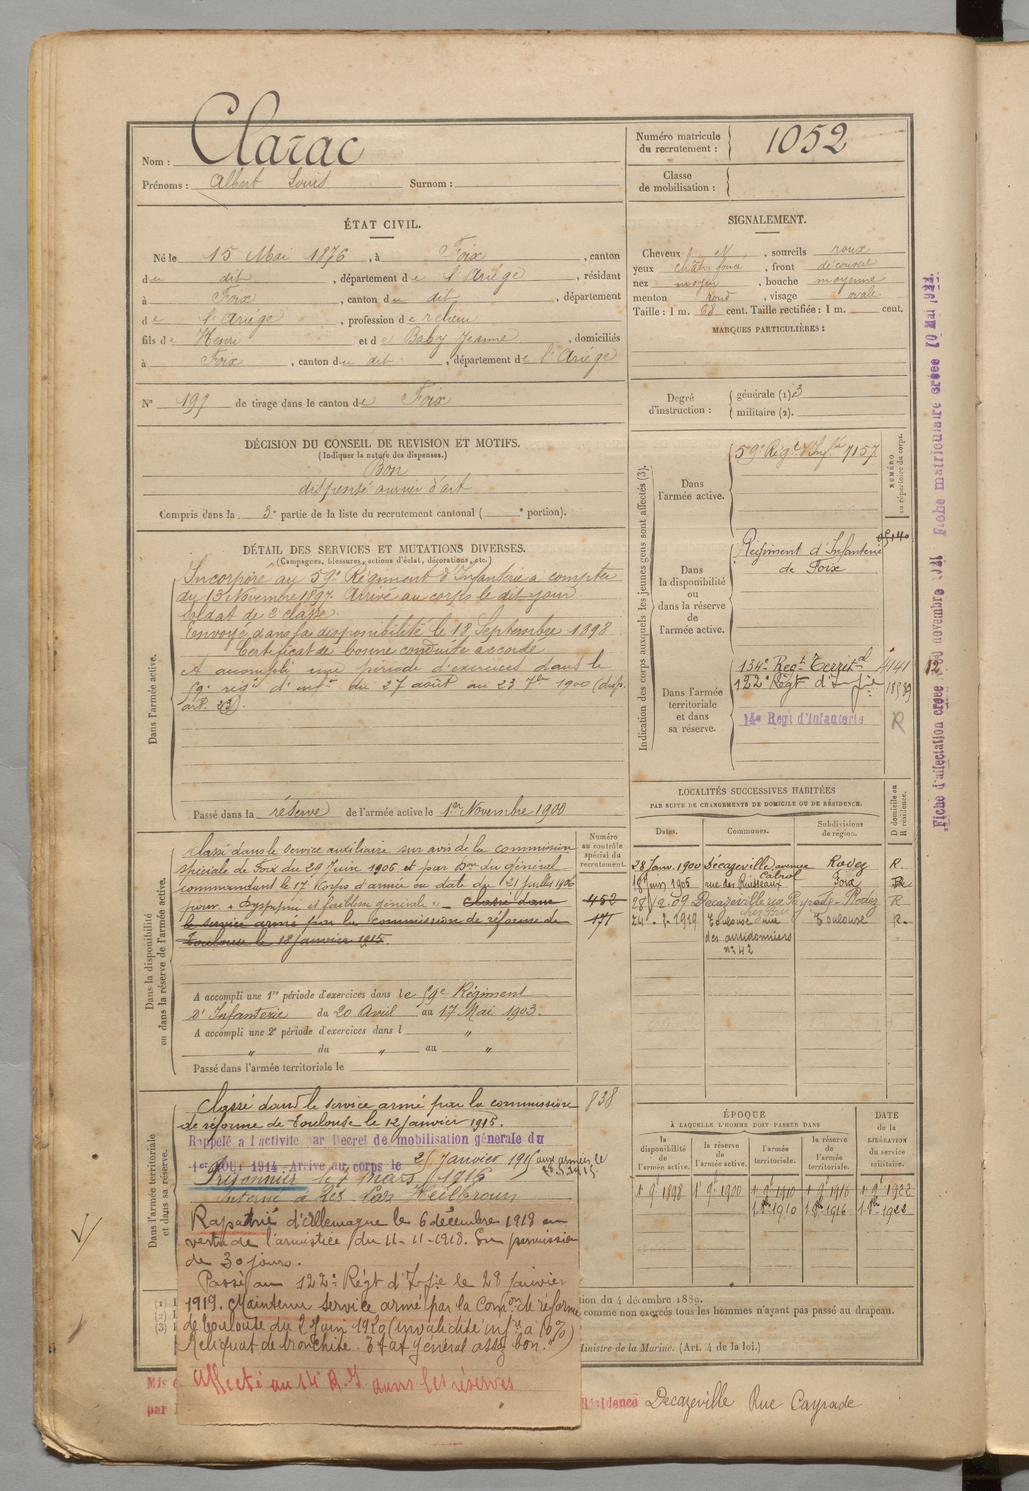 Nom : Clarac
Prénoms : Albert Louis Surnom :
Numéro matricule du recrutement : 1052
Classe de mobilisation :
ÉTAT CIVIL.
Né le 15 Mai 1876, à Foix, canton
du dit, département de l'Ariège, résidant
à Foix, canton du dit, département
de l'Ariège, profession de relieur
fils de Henri et de Baby Jeanne, domiciliés
à Foix, canton du dit, département de l'Ariège
N° 197 de tirage dans le canton de Foix
SIGNALEMENT.
Cheveux, sourcils roux
yeux chat. foncé, front découvert
nez moyen, bouche moyenne
menton rond, visage ovale
Taille : 1 m. 68 cent. Taille rectifiée : 1 m. cent.
MARQUES PARTICULIÈRES :
Degré d'instruction : générale (1) 3
militaire (2).
DÉCISION DU CONSEIL DE REVISION ET MOTIFS.
(Indiquer la nature des dispenses.)
Bon
dispensé ouvrier d'art
Compris dans la 3e partie de la liste du recrutement cantonal ( e portion).
DÉTAIL DES SERVICES ET MUTATIONS DIVERSES.
(Campagnes, blessures, actions d'éclat, décorations, etc.)
Dans l'armée active.
Incorporé au 59e Régiment d'Infanterie à compter
du 13 Novembre 1897. Arrivé au corps le dit jour
soldat de 2e classe.
Envoyé dans la disponibilité le 18 Septembre 1898
Certificat de bonne conduite accordé
A accompli une période d'exercices dans le
59e régt d'infie du 27 août au 23 7bre 1900 (disp.
art. 23).
Passé dans la réserve de l'armée active le 1er Novembre 1900
Indication des corps auxquels les jeunes gens sont affectés (3).
NUMÉRO au répertoire du corps.
Dans l'armée active.
59e Régt d'Infie 7157
Dans la disponibilité ou dans la réserve de l'armée active.
Régiment d'Infanterie
de Foix
Dans l'armée territoriale et dans sa réserve.
134e Regt Territal 4141
122e Régt d'Infie 18989
14e Regt d'Infanterie R
Fiche d'affectation créée le 30 novembre 1921 Fiche matriculaire créée 10 Mai 1922.
Dans la disponibilité ou dans la réserve de l'armée active.
Numéro au contrôle spécial du recrutement.
Classé dans le service auxiliaire sur avis de la commission
spéciale de Foix du 29 Juin 1906 et par Don du général
commandant le 17e Corps d'armée en date du 21 Juillet 1906
pour « Dyspepsie et faiblesse générale ». Classé dans
le service armé par la commission de réforme de
Toulouse le 18 janvier 1915.
452
177
A accompli une 1re période d'exercices dans le 59e Régiment
d'Infanterie du 20 Avril au 17 Mai 1903.
A accompli une 2e période d'exercices dans l "
" du " au "
Passé dans l'armée territoriale le
LOCALITÉS SUCCESSIVES HABITÉES
PAR SUITE DE CHANGEMENTS DE DOMICILE OU DE RÉSIDENCE.
Dates. Communes. Subdivisions de région. D domicile ou R résidence.
28 Janv. 1900 Décazeville avenue Cabrol Rodez R
18 Janv 1905 rue des Ruisseaux Foix
28/2 09 Decazeville rue Cayrade Rodez R
24-2-1919 Toulouse rue Toulouse R
n° 42
Dans l'armée territoriale et dans sa réserve.
Classé dans le service armé par la commission 838
de réforme de Toulouse le 12 janvier 1915.
Rappelé à l'activité par Décret de mobilisation générale du
1er AOUT 1914. Arrivé au corps le 25 Janvier 1915 aux armées le
Prisonnier le 7 mars 1916
Interné à Heilbronn
Rapatrié d'Allemagne le 6 décembre 1918 en
vertu de l'armistice du 11-11-1918. En permission
de 30 jours.
Passé au 122e Régt d'Infie le 28 janvier
1919. Maintenu service armé par la Comon de réforme
de Toulouse du 2 Juin 1920 (invalidité infre à 10%)
Reliquat de bronchite. Etat général assez bon."
Affecté au 14e R.I. dans les réserves
ÉPOQUE
À LAQUELLE L'HOMME DOIT PASSER DANS
DATE de la LIBÉRATION du service militaire.
la disponibilité de l'armée active. la réserve de l'armée active. l'armée territoriale. la réserve de l'armée territoriale.
1er 9bre 1898 1er 9bre 1900 1er 9bre 1910 1er 9bre 1916 1er 9bre 1922
1er 8bre 1910 1er 8bre 1916 1er 8bre 1922
(1)
(2)
(3)
du 4 décembre 1889.
comme non exercés tous les hommes n'ayant pas passé au drapeau.
Ministre de la Marine. (Art. 4 de la loi.)
Mis
par
Résidence Decazeville Rue Cayrade